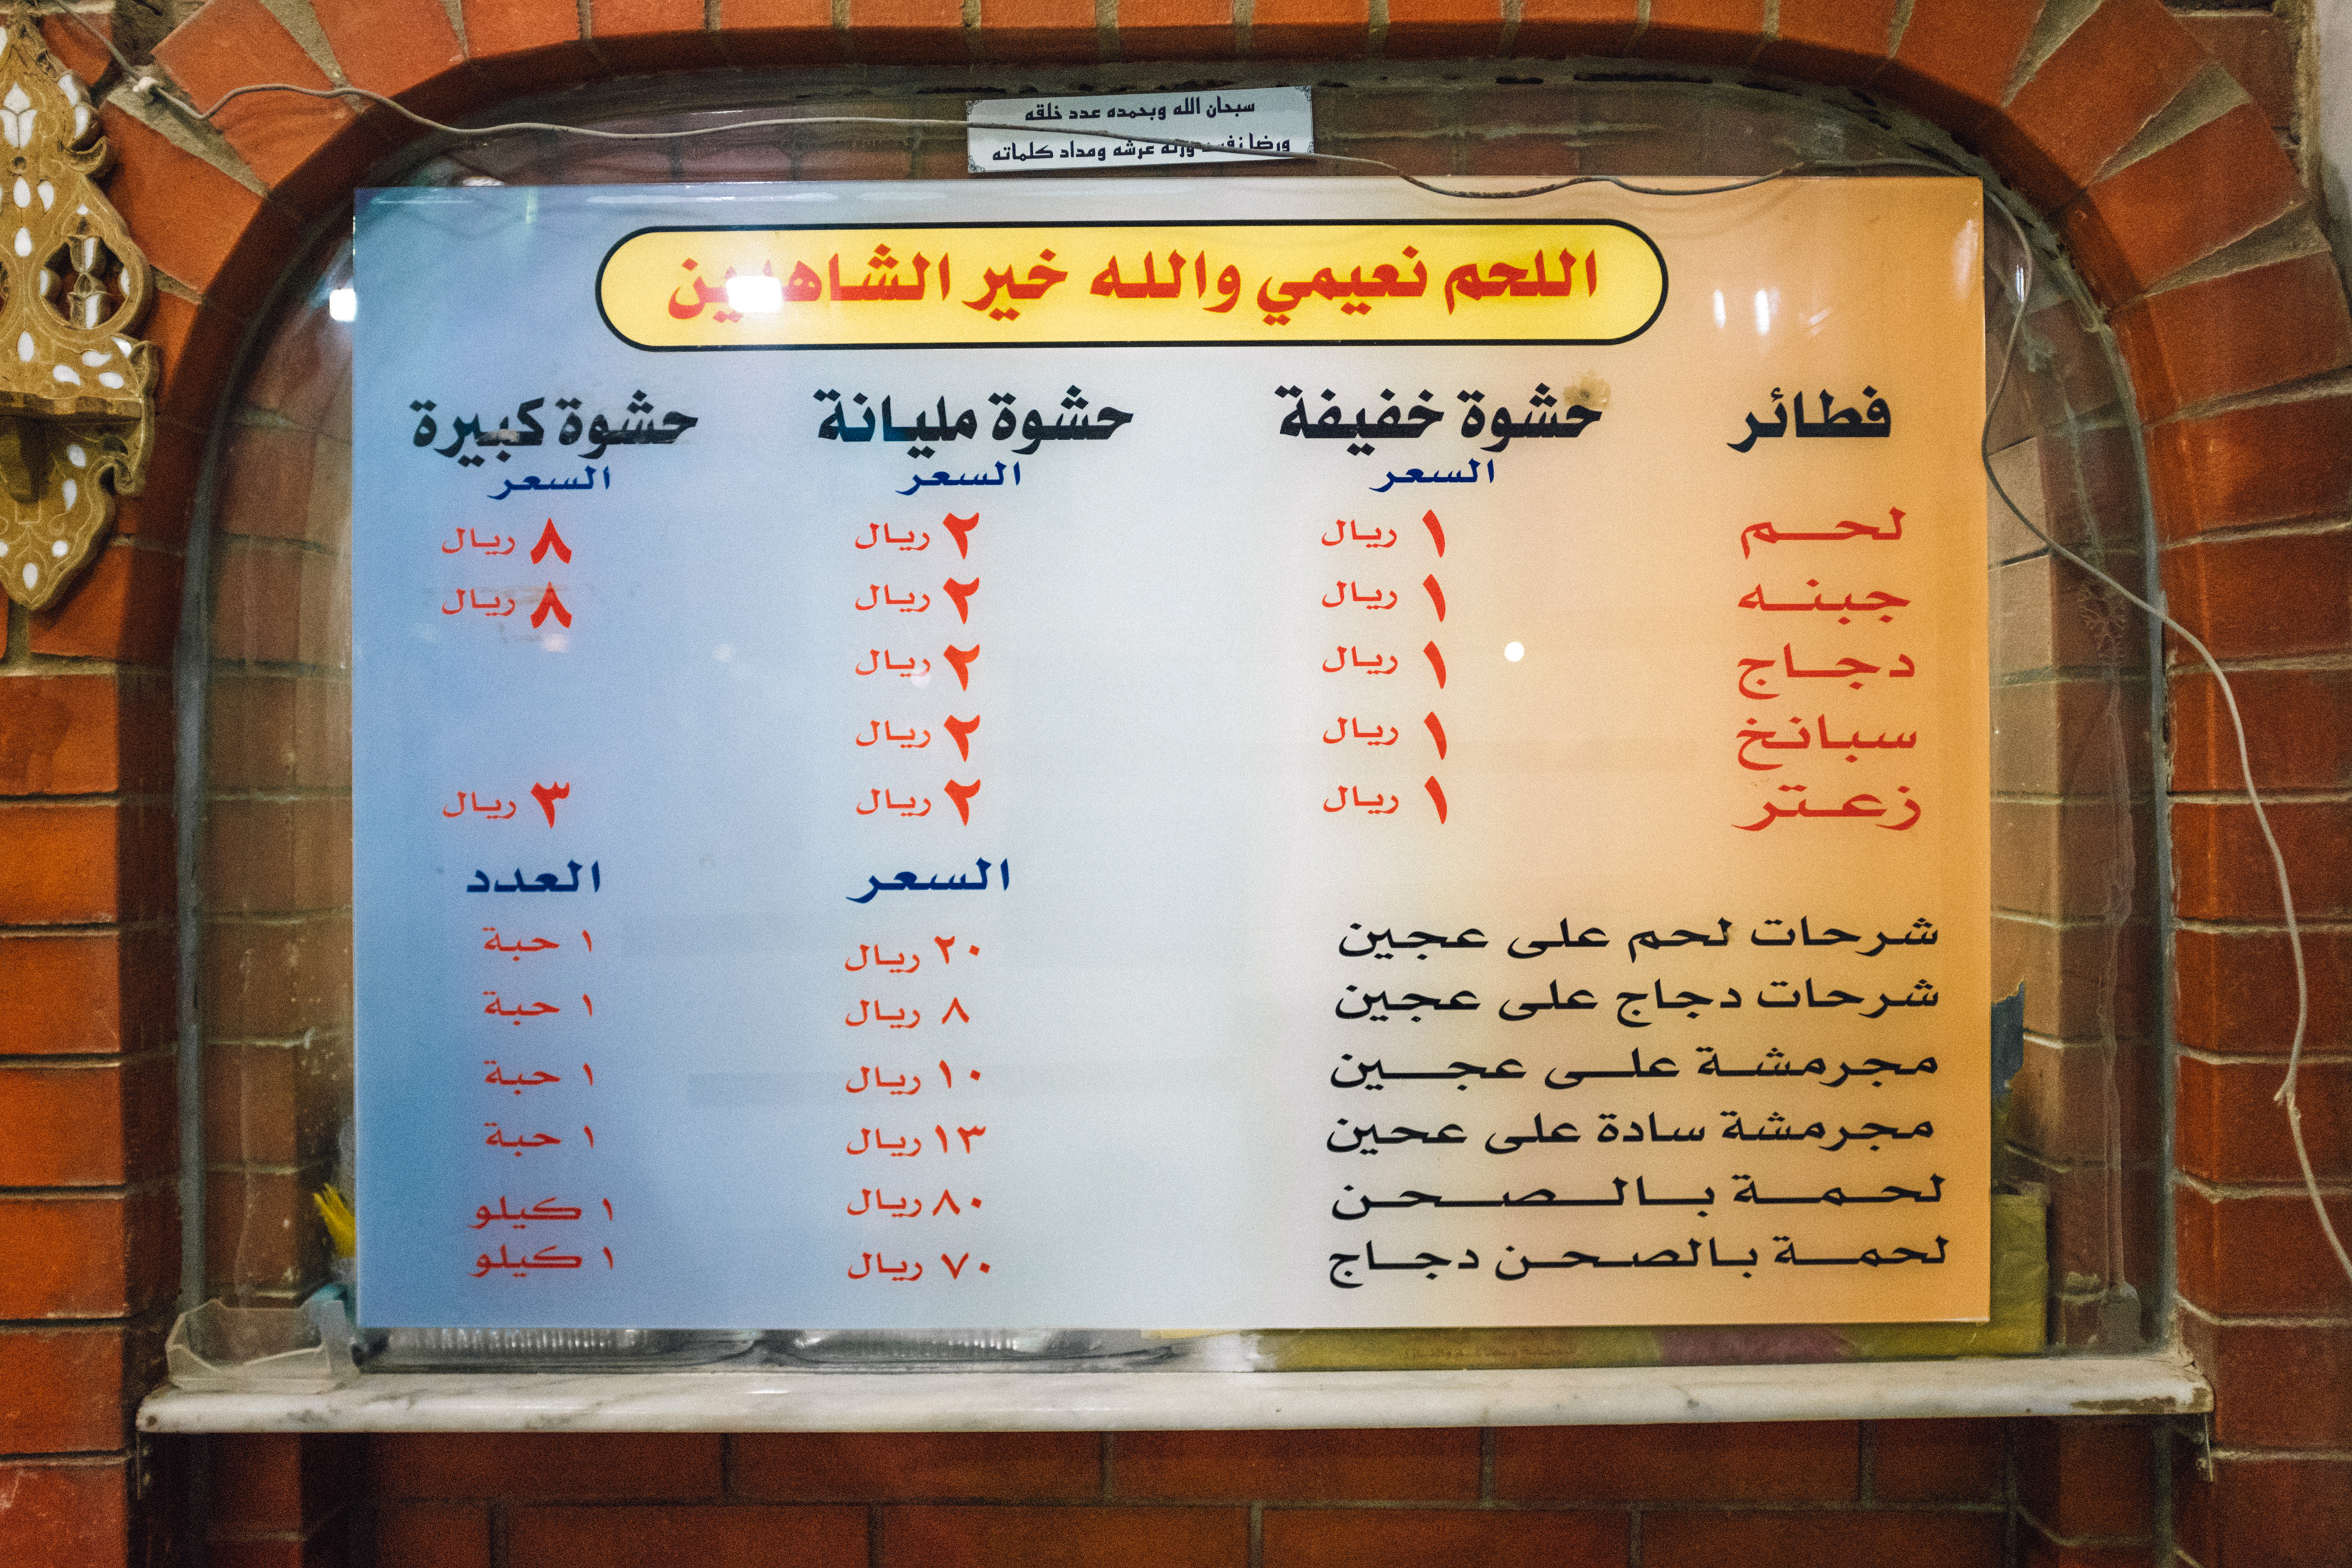 سبحان الله وبحمده عدد خلقه
ورضا نفسه وزنه عرشه ومداد كلماته
اللحم نعيمي والله خير الشاهدين
فطائر حشوة خفيفة حشوة مليانة حشوة كبيرة
السعر السعر السعر
لحم ١ ريال ٢ ريال ٨ ريال
جبنه ١ ريال ٢ ريال ٨ ريال
دجاج ١ ريال ٢ ريال
سبانخ ١ ريال ٢ ريال
زعتر ١ ريال ٢ ريال ٣ ريال
السعر العدد
شرحات لحم على عجين ٢٠ ريال ١ حبة
شرحات دجاج على عجين ٨ ريال ١ حبة
مجرمشة على عجين ١٠ ريال ١ حبة
مجرمشة سادة على عحين ١٣ ريال ١ حبة
لحمة بالصحن ٨٠ ريال ١ كيلو
لحمة بالصحن دجاج ٧٠ ريال ١ كيلو